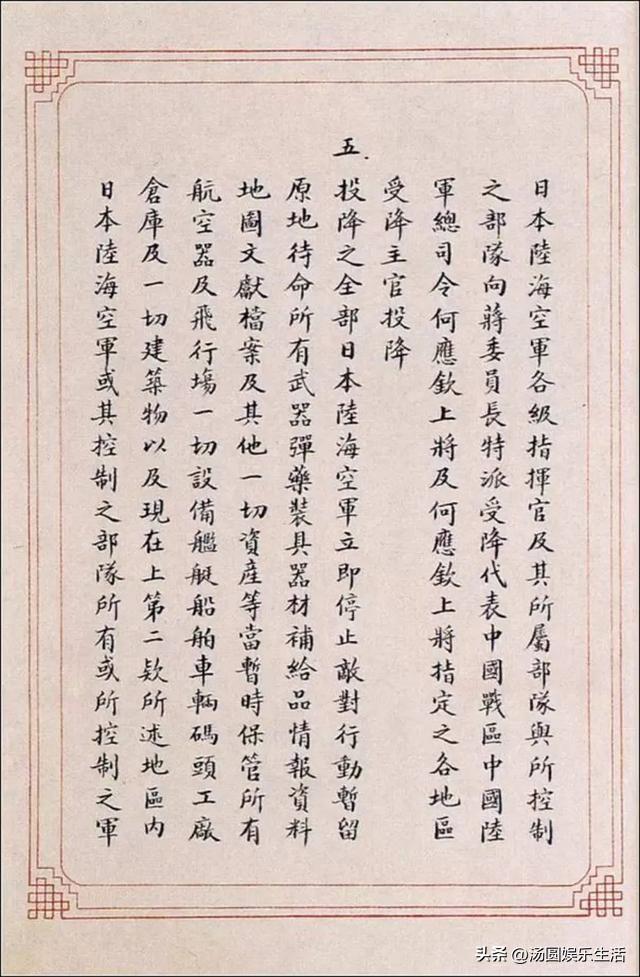 日本陸海空軍各級指揮官及其所屬部隊與所控制
之部隊向蔣委員長特派受降代表中國戰區中國陸
軍總司令何應欽上將及何應欽上將指定之各地區
受降主官投降
五.投降之全部日本陸海空軍立即停止敵對行動暫留
原地待命所有武器彈藥裝具器材補給品情報資料
地圖文獻檔案及其他一切資產等當暫時保管所有
航空器及飛行場一切設備艦艇船舶車輛碼頭工廠
倉庫及一切建築物以及現在上第二欵所述地區內
日本陸海空軍或其控制之部隊所有或所控制之軍
头条@汤圆娱乐生活